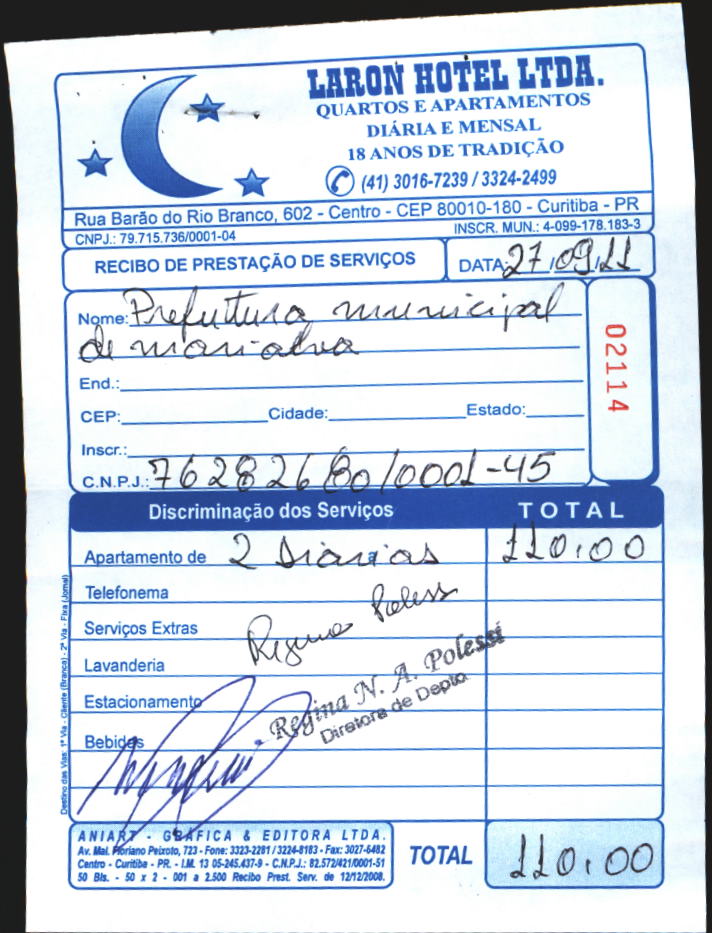 LARON HOTEL LTDA.
QUARTOS E APARTAMENTOS
DIÁRIA E MENSAL
18 ANOS DE TRADIÇÃO
(41) 3016-7239 / 3324-2499
Rua Barão do Rio Branco, 602 - Centro - CEP 80010-180 - Curitiba - PR
CNPJ.: 79.715.736/0001-04 INSCR. MUN.: 4-099-178.183-3
RECIBO DE PRESTAÇÃO DE SERVIÇOS DATA: 27/09/11
Nome: Prefeitura municipal
de marialva
02114
End.:
CEP: Cidade: Estado:
Inscr.:
C.N.P.J.: 76282680/0001-45
Discriminação dos Serviços TOTAL
Apartamento de 2 Diárias 110,00
Telefonema
Serviços Extras
Regina Polessi
Lavanderia
Estacionamento
Regina N. A. Polessi
Diretora de Depto
Bebidas
Destino das Vias: 1ª Via - Cliente (Branca) - 2ª Via - Fixa (Jornal)
ANIART - GRÁFICA & EDITORA LTDA.
Av. Mal. Floriano Peixoto, 723 - Fone: 3323-2281 / 3224-8183 - Fax: 3027-6482
Centro - Curitiba - PR. - I.M. 13 05-245.437-9 - C.N.P.J.: 82.572/421/0001-51
50 Bls. - 50 x 2 - 001 a 2.500 Recibo Prest. Serv. de 12/12/2008.
TOTAL 110,00